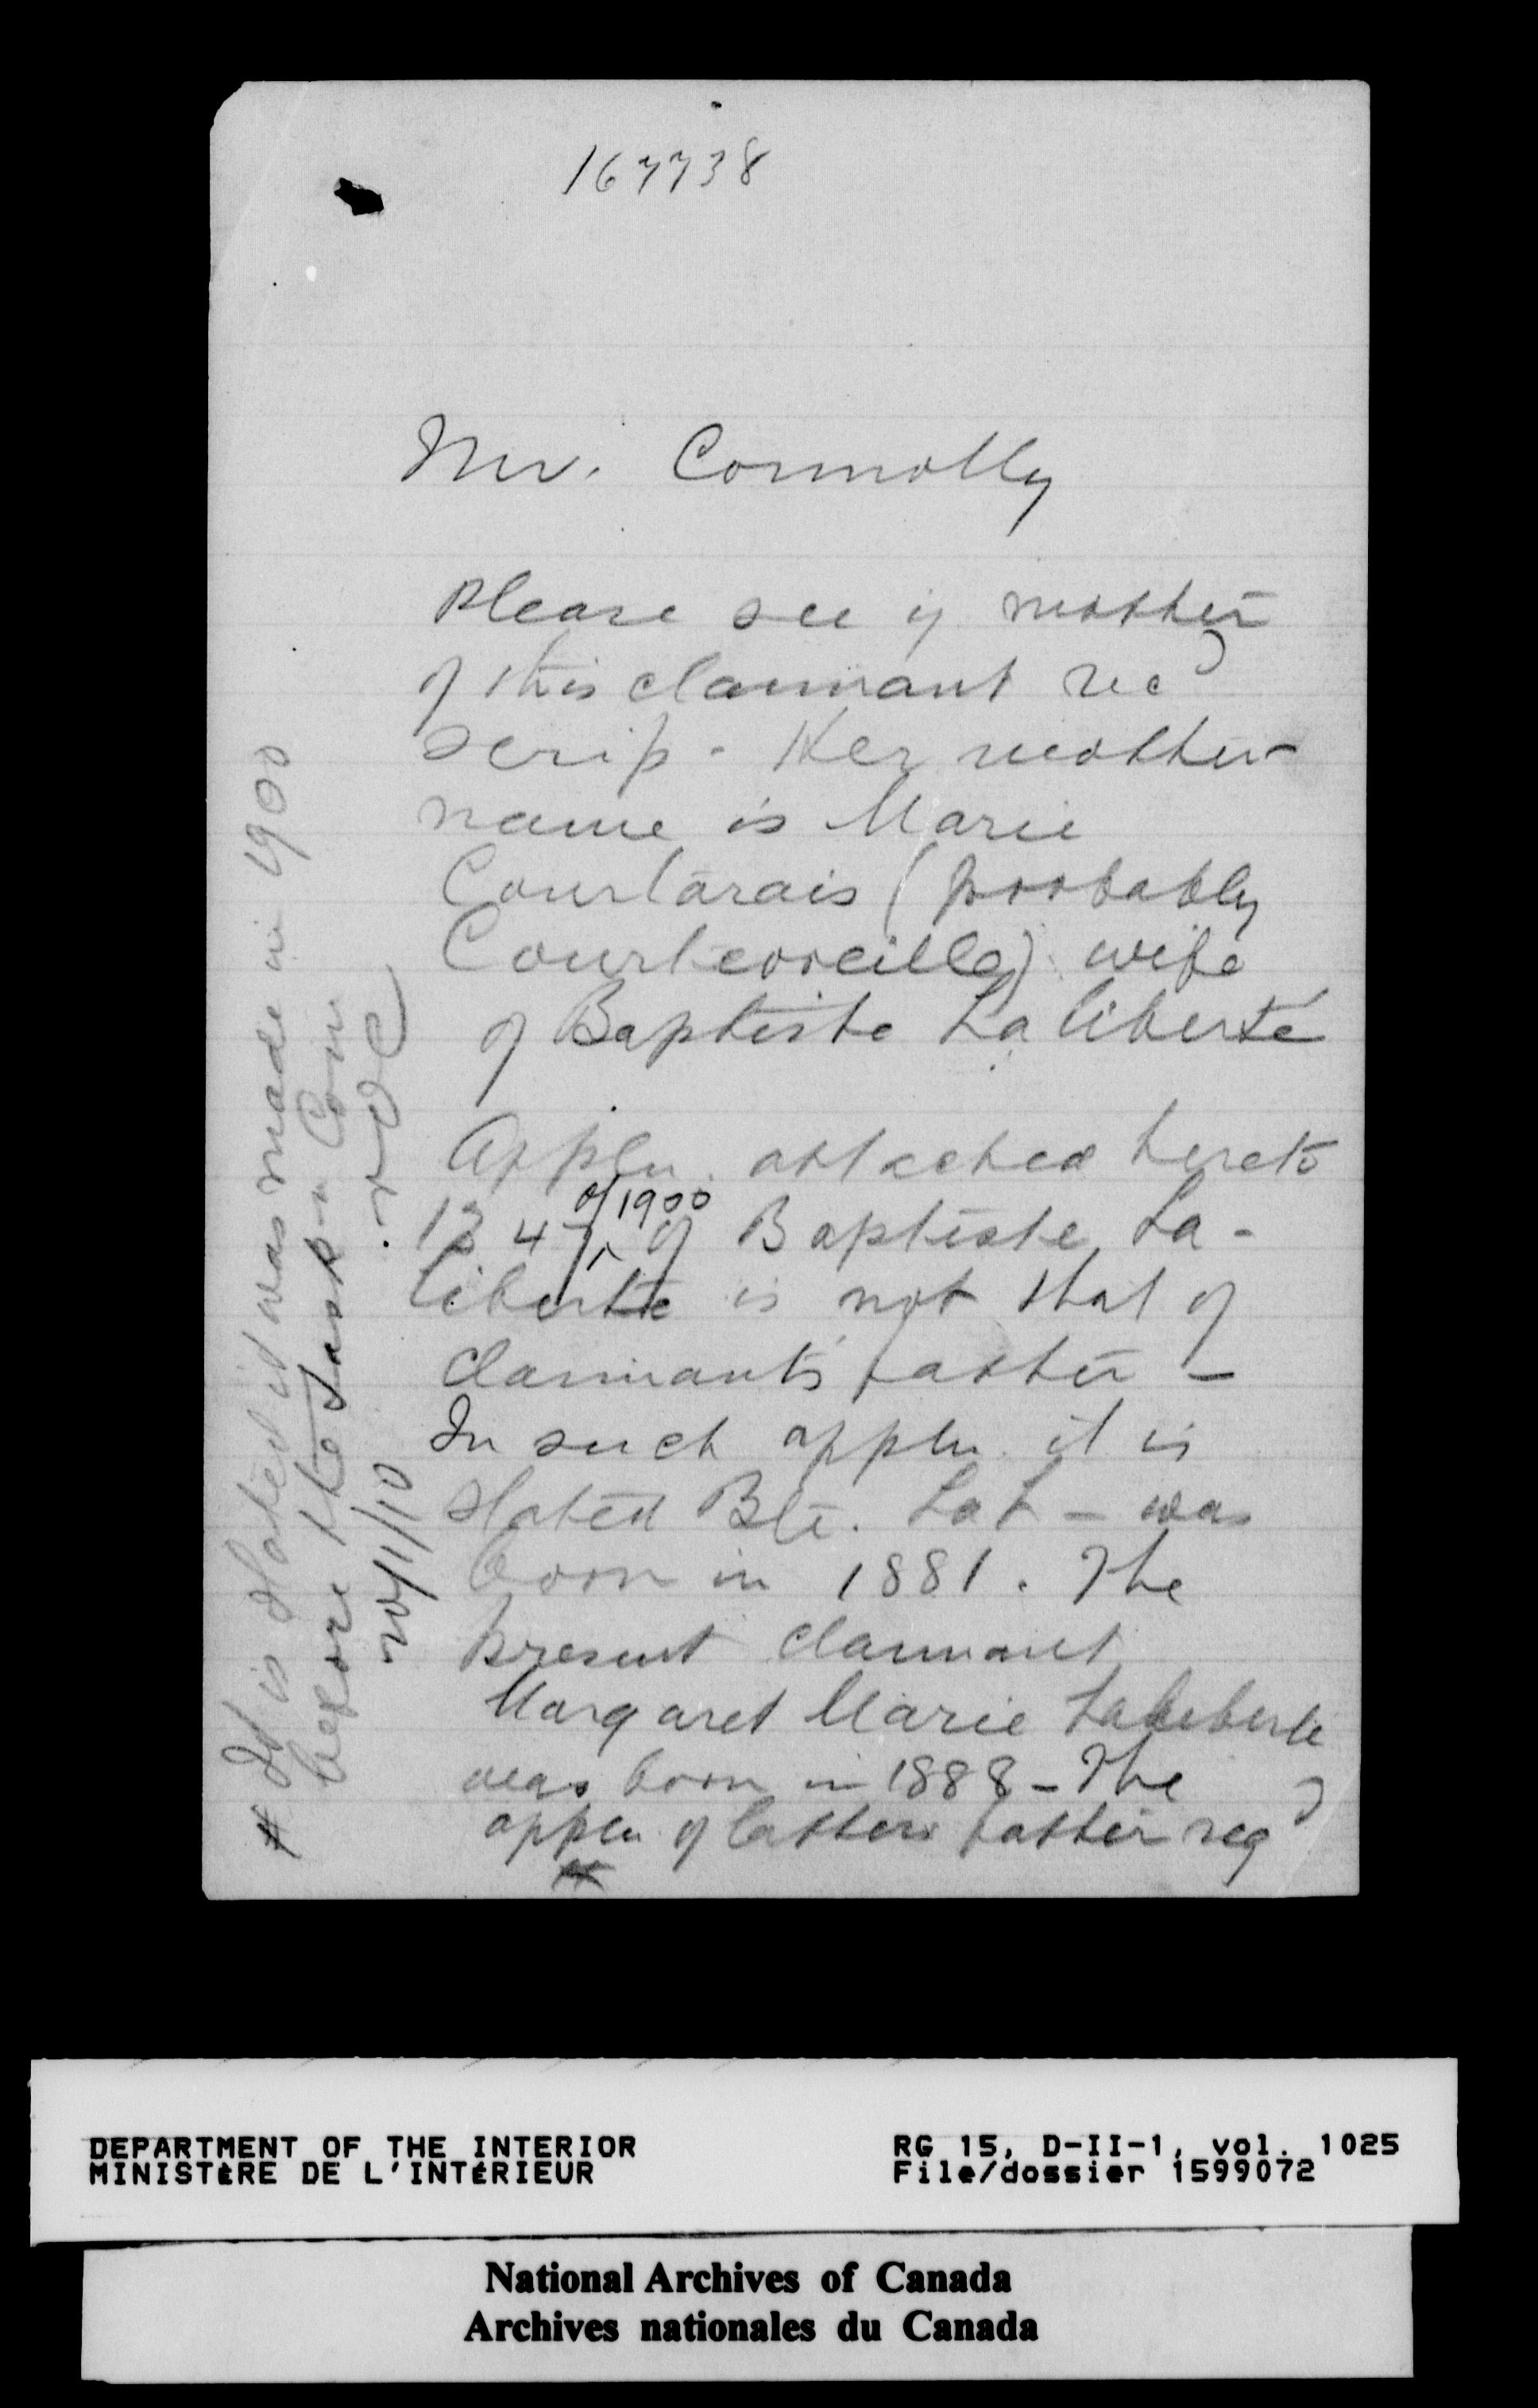 167738
Mr. Connolly
Please see if mother
of this claimant recd
scrip - Her mother
name is Marie
Courtarais (probably
Courteoreille) wife
of Baptiste La liberté
Appln. attached hereto
1347, of 1900 of Baptiste La-
liberte is not that of
claimants father -
In such appln. it is
stated Bte. Lat - was
born in 1881. The
present claimant
Margaret Marie Laliberte
was born in 1888 - The
appln of latters father reqd
# It is stated it was made in 1900
before the Sask Com
20/1/10
DEPARTMENT OF THE INTERIOR
MINISTÈRE DE L'INTÉRIEUR
RG 15, D-II-1, vol. 1025
File/dossier 1599072
National Archives of Canada
Archives nationales du Canada